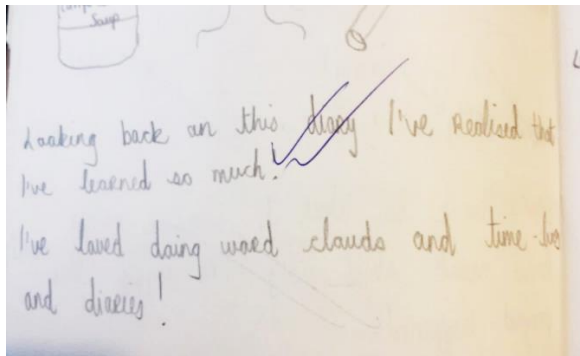 Soup
Looking back on this diary I've realised that
I've learned so much!
I've loved doing word clouds and time-lines
and diaries!